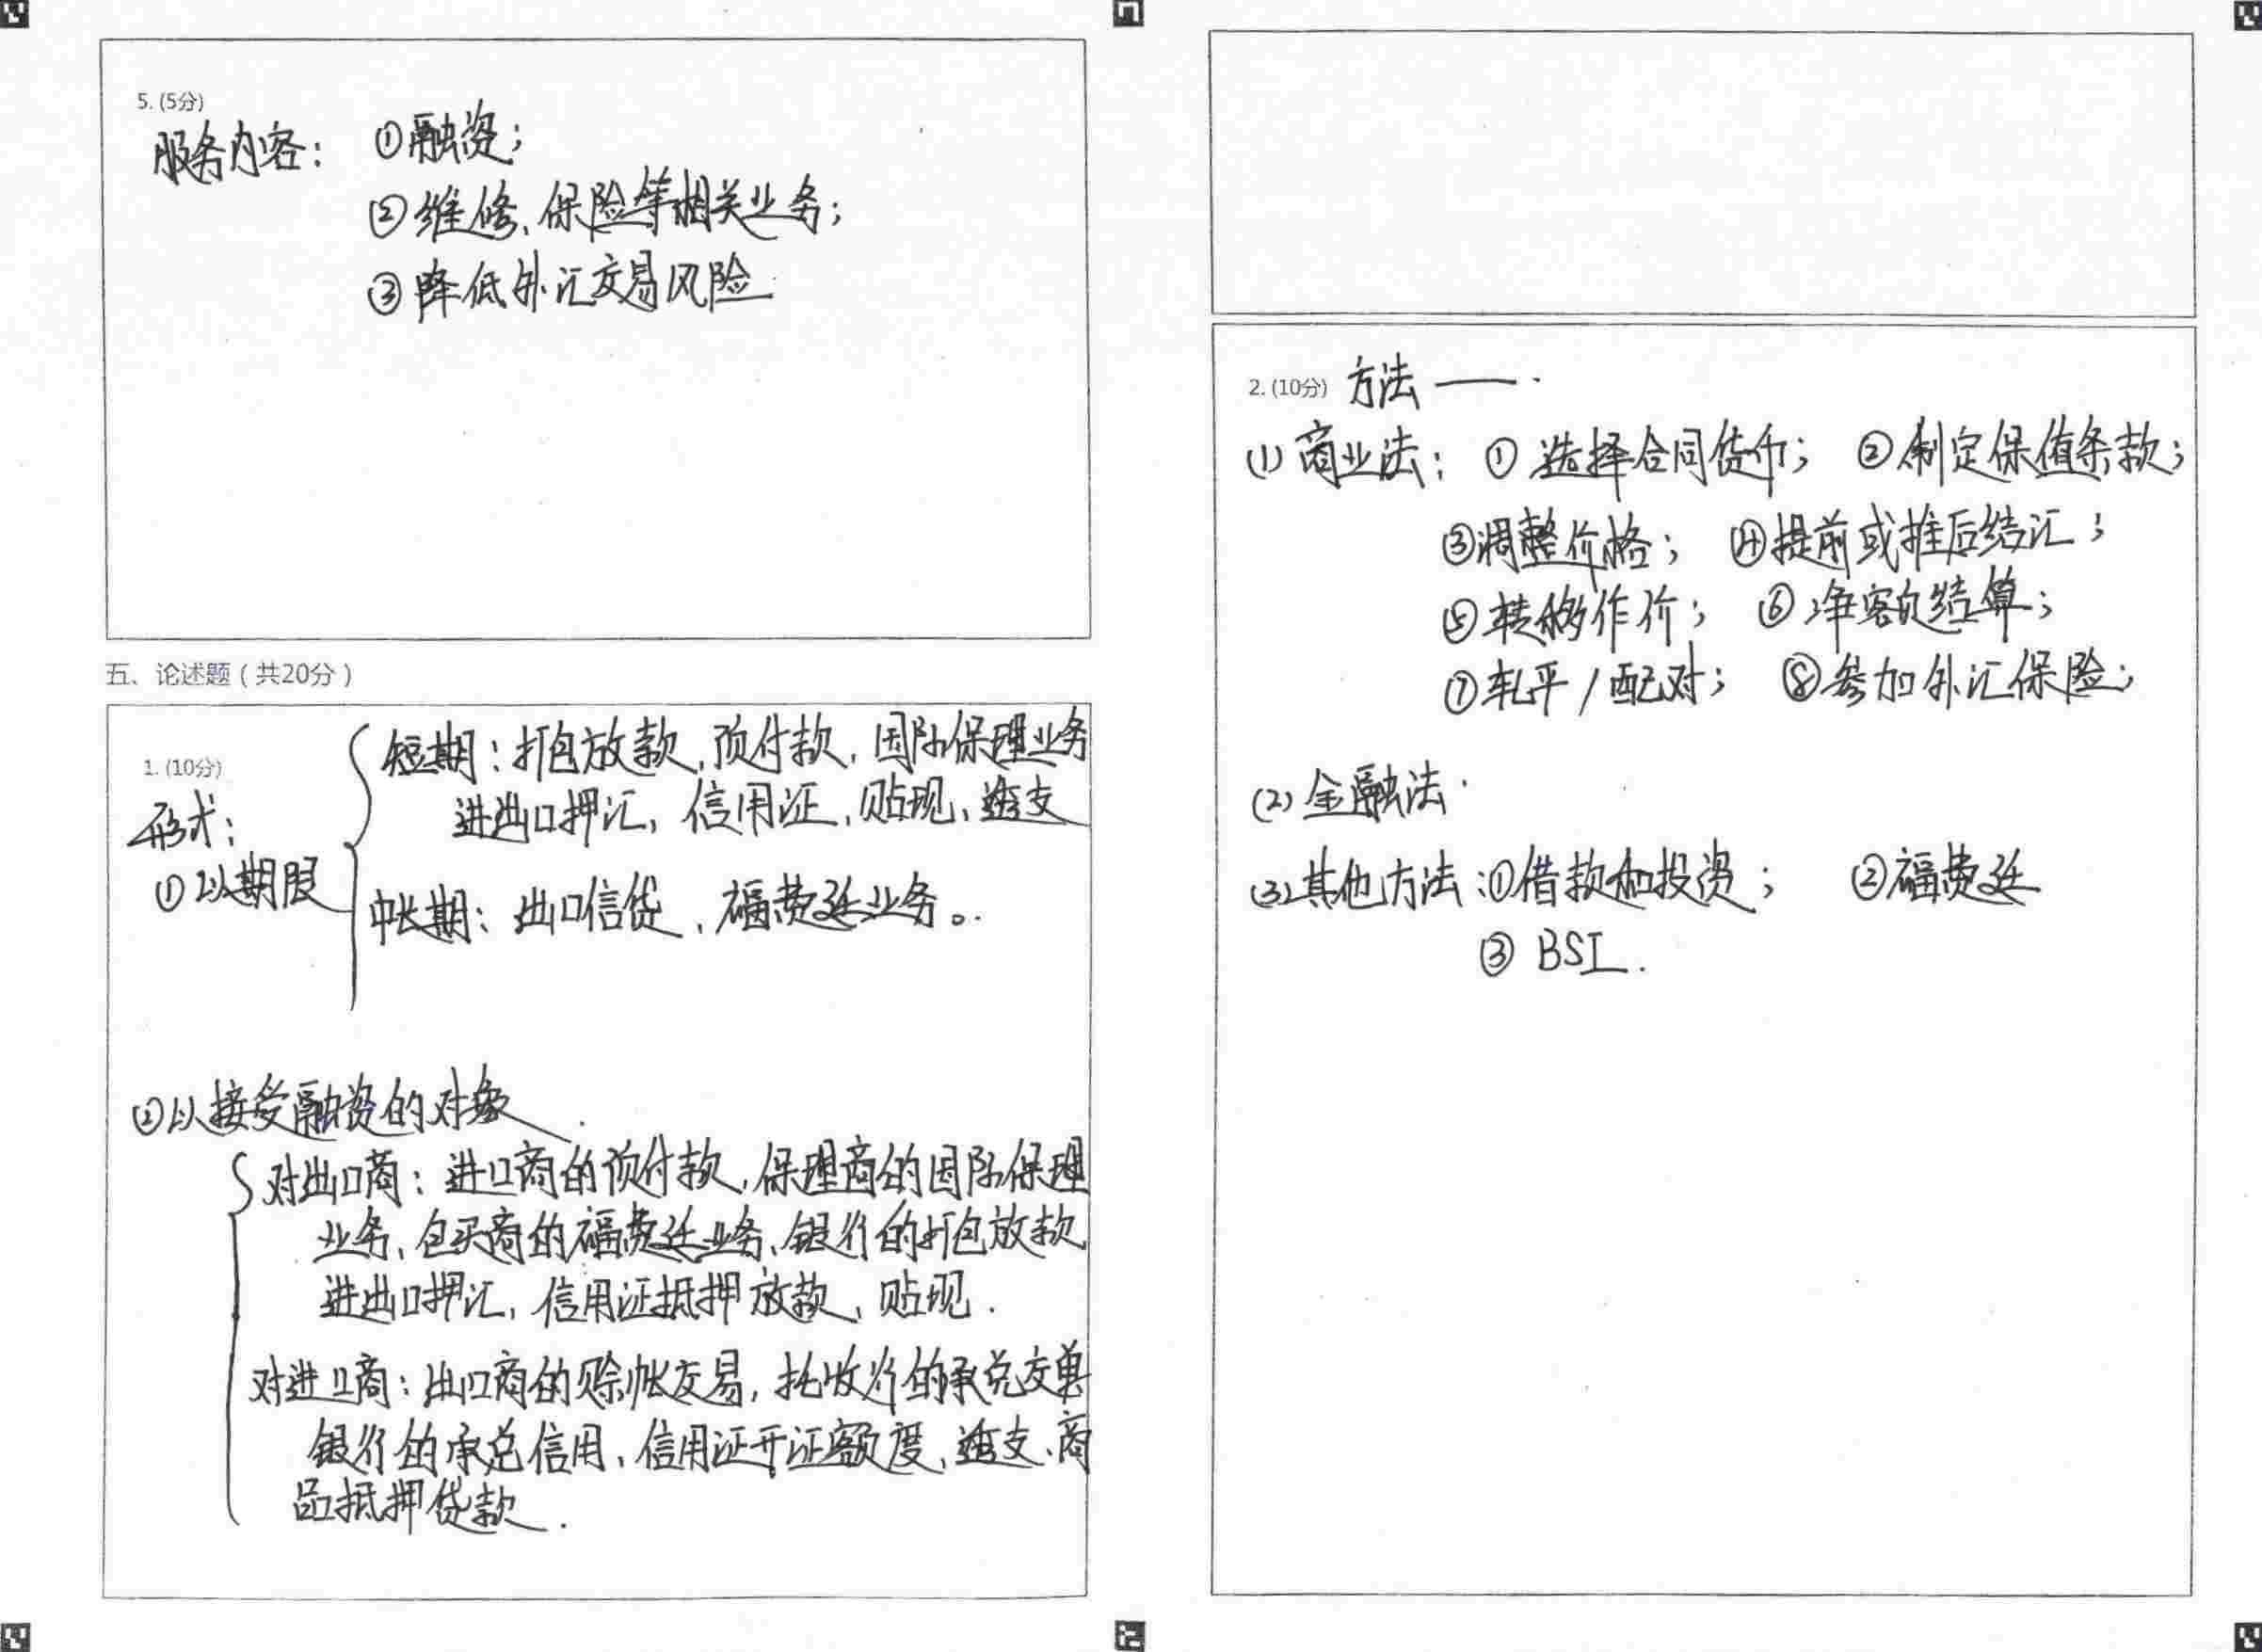 5. (5分)
服务内容: ①融资;
②维修、保险等相关业务;
③降低外汇交易风险.
五、论述题（共20分）
1. (10分)
形式:
①以期限
短期: 打包放款、预付款、国际保理业务
进出口押汇、信用证、贴现、透支
中长期: 出口信贷、福费廷业务。
②以接受融资的对象
对出口商: 进口商的预付款、保理商的国际保理
业务、包买商的福费廷业务、银行的打包放款
进出口押汇、信用证抵押放款、贴现.
对进口商: 出口商的赊帐交易, 托收行的承兑交单
银行的承兑信用、信用证开证额度、透支、商
品抵押贷款.
2. (10分) 方法——.
(1) 商业法: ① 选择合同货币; ②制定保值条款;
③调整价格; ④提前或推后结汇;
⑤转移作价; ⑥净额结算;
⑦轧平/配对; ⑧参加外汇保险;
(2) 金融法.
(3) 其他方法:①借款和投资; ②福费廷
③ BSI.